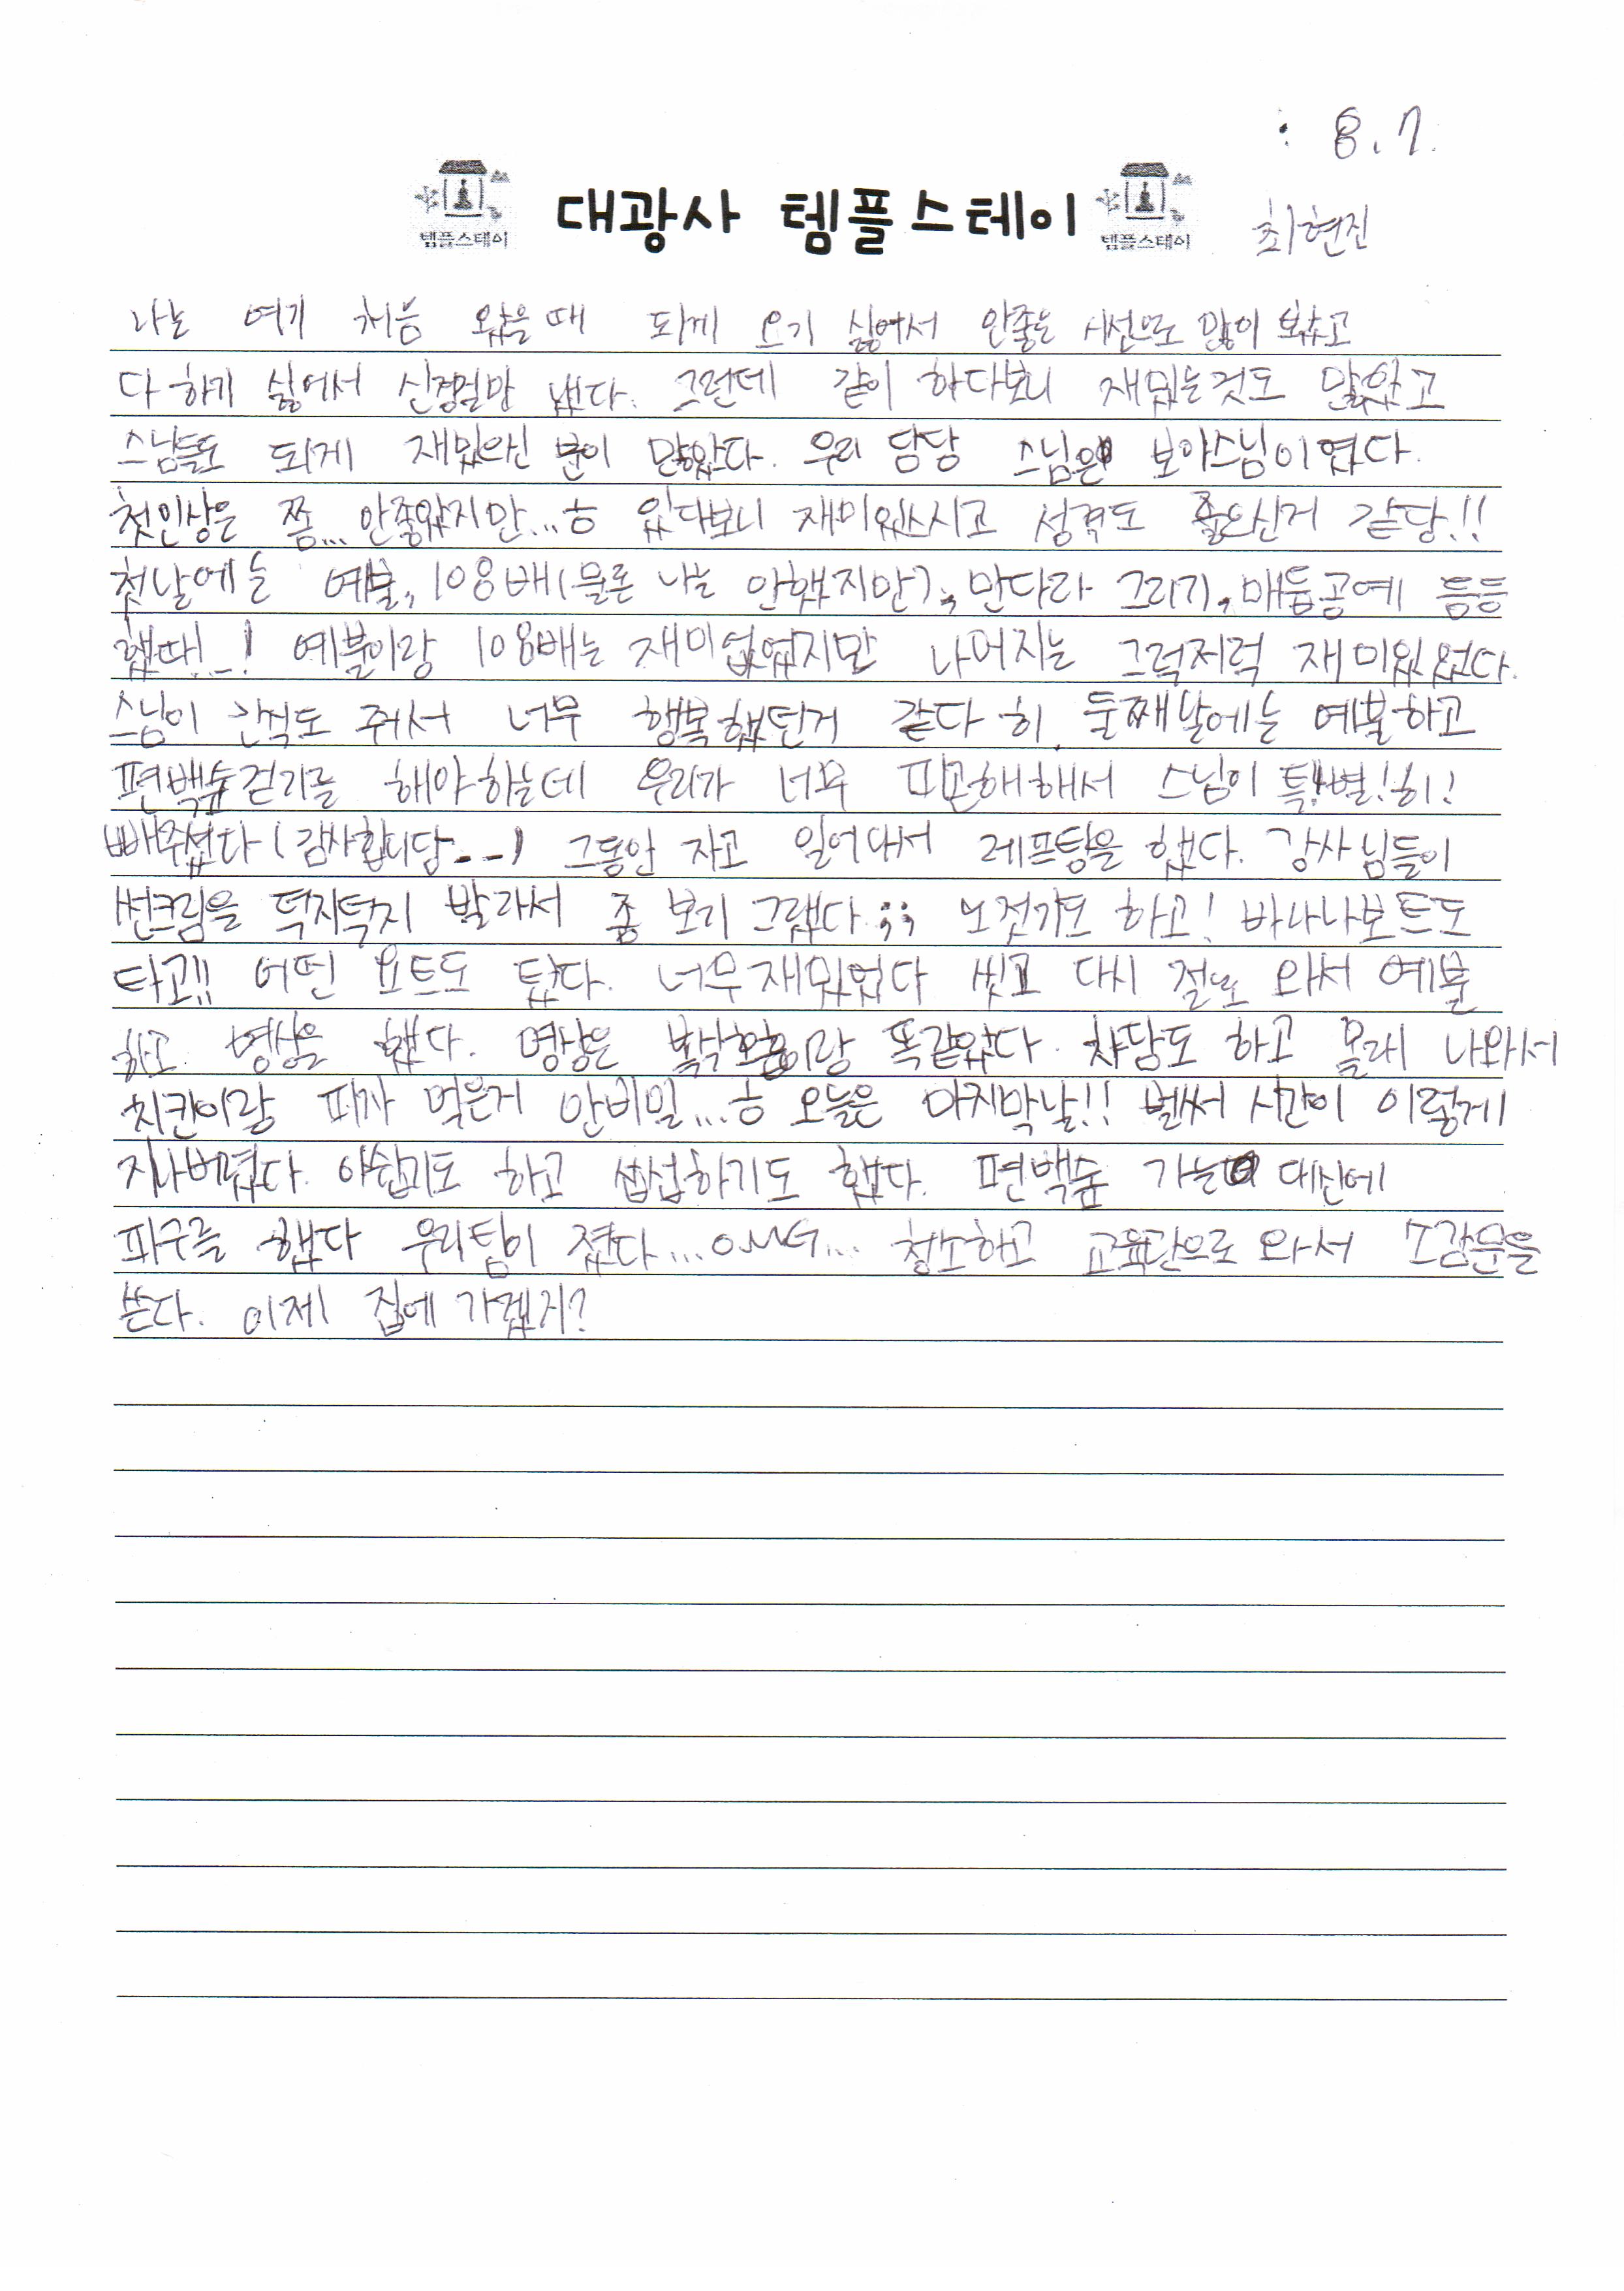 8.7.
템플스테이 대광사 템플스테이 템플스테이
최현진
나는 여기 처음 왔을때 되게 오기 싫어서 안좋는 시선으로 많이 보았고
다 하기 싫어서 신경질만 냈다. 그런데 같이 하다보니 재밌는것도 많았고
스님들도 되게 재밌으신 분이 많았다. 우리 담당 스님은 보아스님이였다.
첫인상은 쫌... 안좋았지만...ㅎ 있다보니 재미있으시고 성격도 좋으신거 같당!!
첫날에는 예불, 108배(물론 나는 안했지만), 만다라 그리기, 매듭공예 등등
했따!_! 예불이랑 108배는 재미없었지만 나머지는 그럭저럭 재미있었다.
스님이 간식도 줘서 너무 행복했던거 같다 히. 둘째날에는 예불하고
편백숲걷기를 해야하는데 우리가 너무 피곤해해서 스님이 특!별!히!
빼주셨다(감사합니당--) 그동안 자고 일어나서 레프팅을 했다. 강사님들이
썬크림을 덕지덕지 발라서 좀 보기 그랬다;; 노젓기도 하고! 바나나보트도
타고!! 어떤 요트도 탔다. 너무재밌었다 씻고 다시 절로 와서 예불
하고 명상을 했다. 명상은 복식호흡이랑 똑같았다. 차담도 하고 몰래 나와서
치킨이랑 피자 먹은거 안비밀...ㅎ 오늘은 마지막날!! 벌써 시간이 이렇게
지나버렸다. 아쉽기도 하고 섭섭하기도 했다. 편백숲 가는 대신에
피구를 했다 우리팀이 졌다...OMG... 청소하고 교육관으로 와서 소감문을
쓴다. 이제 집에 가겠지?